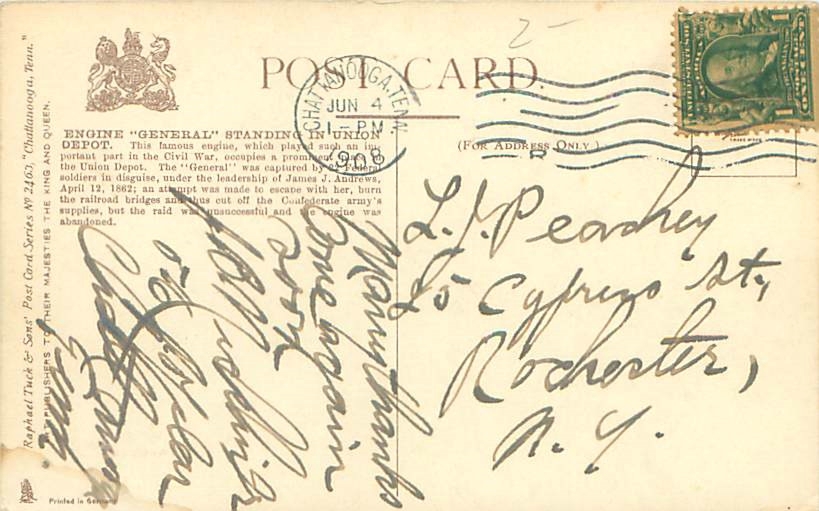 Raphael Tuck & Sons' Post Card Series No 2463, "Chattanooga, Tenn."
ART PUBLISHERS TO THEIR MAJESTIES THE KING AND QUEEN.
POST CARD.
2-
CHATTANOOGA, TENN.
JUN 4
1-PM
1908
ONE CENT
(FOR ADDRESS ONLY)
ENGINE "GENERAL" STANDING IN UNION
DEPOT. This famous engine, which played such an im-
portant part in the Civil War, occupies a prominent place in
the Union Depot. The "General" was captured by 22 Federal
soldiers in disguise, under the leadership of James J. Andrews,
April 12, 1862; an attempt was made to escape with her, burn
the railroad bridges and thus cut off the Confederate army's
supplies, but the raid was unsuccessful and the engine was
abandoned.
Many thanks
Come again
soon
Chattanooga
Tenn
L. J. Peachey
85 Cypress St,
Rochester,
N. Y.
Printed in Germany